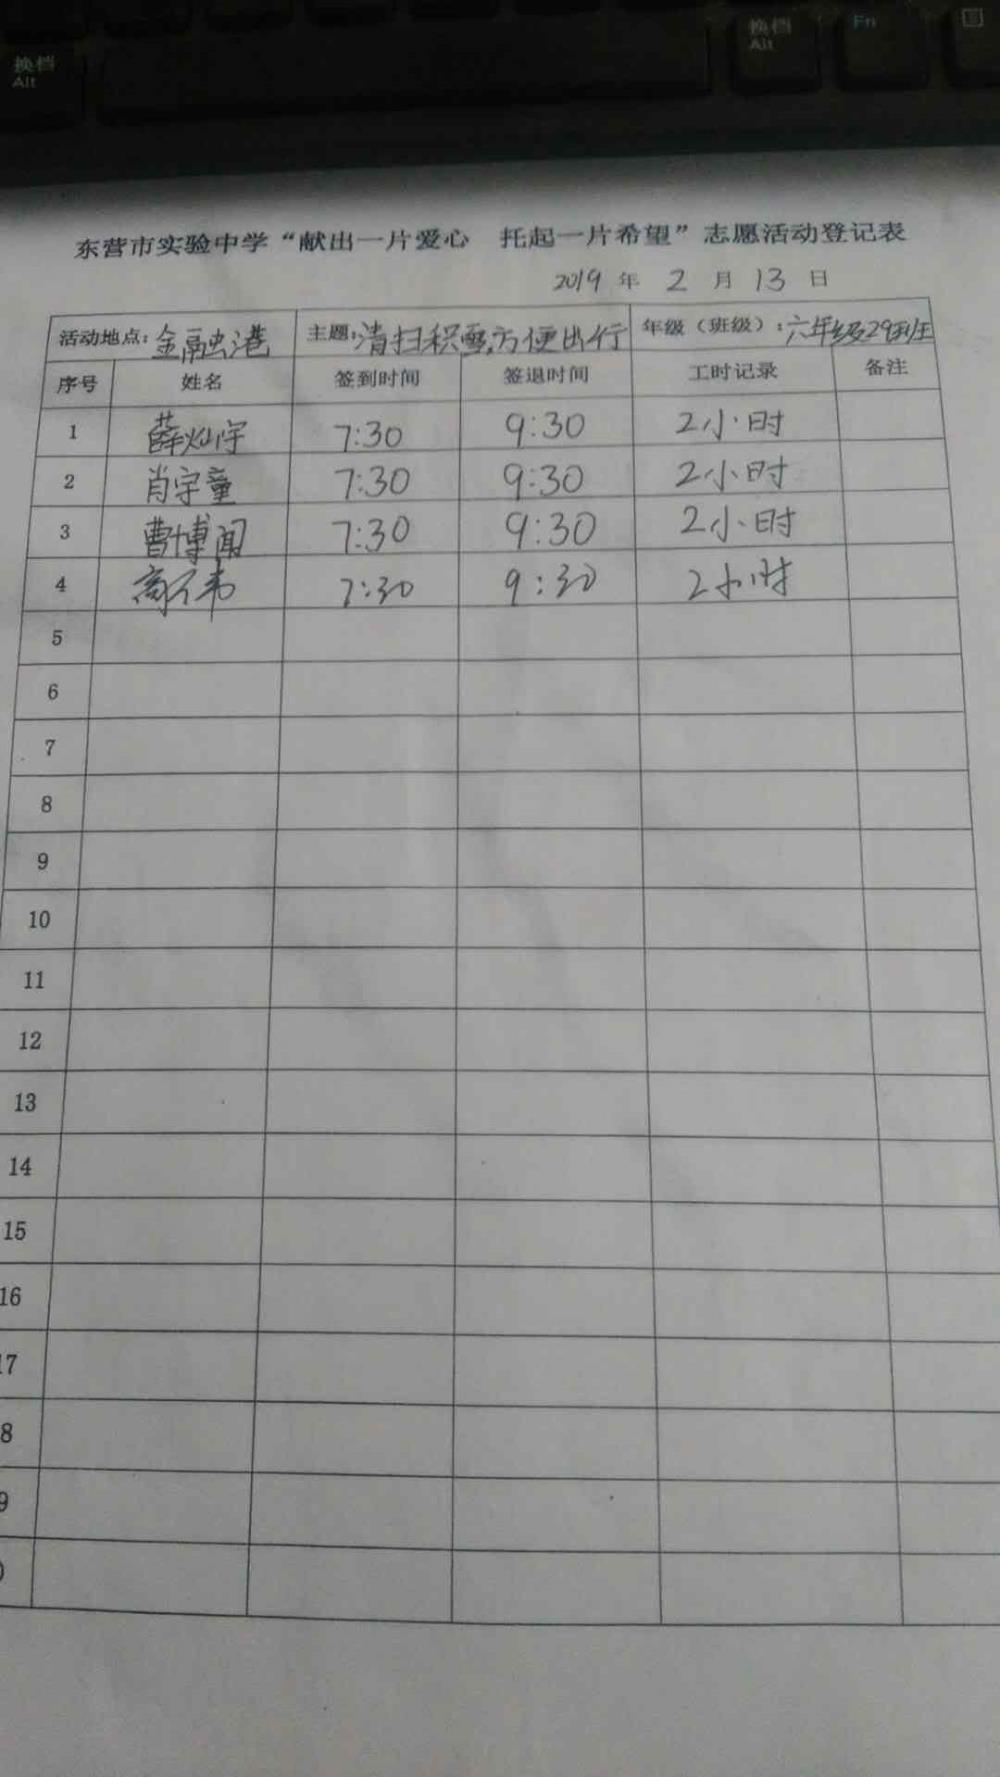 换档 换档 Fn
Alt Alt
东营市实验中学“献出一片爱心 托起一片希望”志愿活动登记表
2019 年 2 月 13 日
活动地点:金融港 主题:清扫积雪,方便出行 年级(班级):六年级29班
序号 姓名 签到时间 签退时间 工时记录 备注
1 薛灿宇 7:30 9:30 2小时
2 肖宇童 7:30 9:30 2小时
3 曹博闻 7:30 9:30 2小时
4 7:30 9:30 2小时
5
6
7
8
9
10
11
12
13
14
15
16
17
8
9